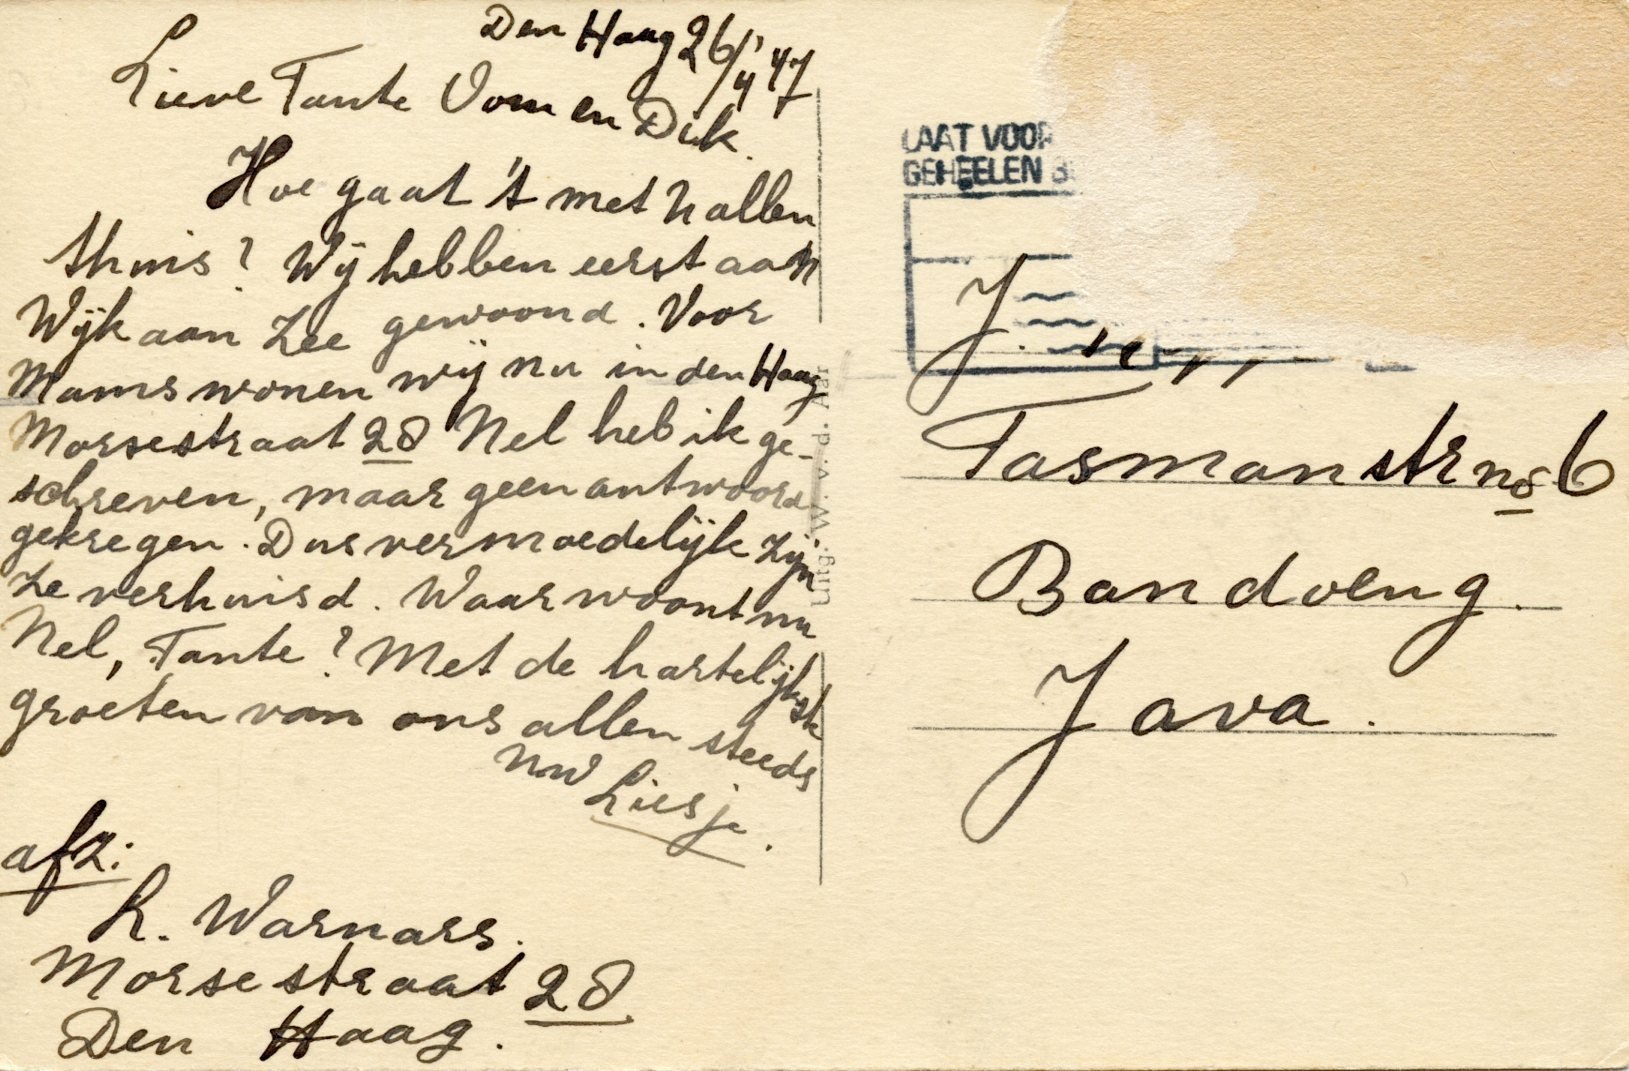 Den Haag 26/4 '47
Lieve Tante Oom en Dick.
Hoe gaat 't met U allen
thuis? Wij hebben eerst aan
Wijk aan Zee gewoond. Voor
Mams wonen wij nu in den Haag
Morsestraat 28 Nel heb ik ge-
schreven, maar geen antwoord
gekregen. Dus vermoedelijk zijn
ze verhuisd. Waar woont nu
Nel, Tante? Met de hartelijkste
groeten van ons allen steeds
Uw Liesje.
afz:
L. Warnars.
Morsestraat 28
Den Haag.
Uitg. W. v. d.
LAAT VOOR
GEHEELEN
J.
Tasmanstr no 6
Bandoeng.
Java.